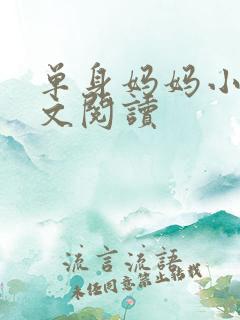 单身妈妈小
文閱讀
流言流語
未经同意禁止转载